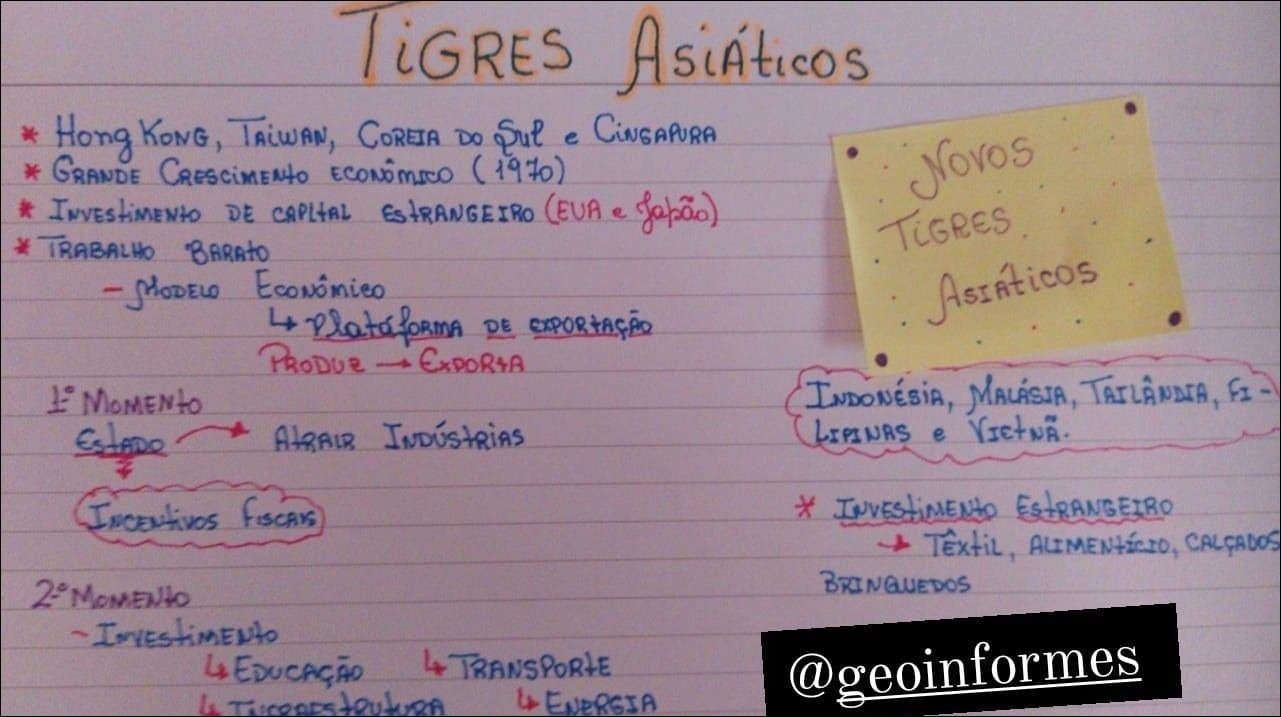 TIGRES ASIÁTICOS
* HONG KONG, TAIWAN, COREIA DO SUL e CINGAPURA
* GRANDE CRESCIMENTO ECONÔMICO (1970)
* INVESTIMENTO DE CAPITAL ESTRANGEIRO (EUA e Japão)
* TRABALHO BARATO
- MODELO ECONÔMICO
↳ PLATAFORMA DE EXPORTAÇÃO
PRODUZ → EXPORTA
1º MOMENTO
ESTADO → ATRAIR INDÚSTRIAS
INCENTIVOS FISCAIS
2º MOMENTO
- INVESTIMENTO
↳ EDUCAÇÃO ↳ TRANSPORTE
↳ INFRAESTRUTURA ↳ ENERGIA
NOVOS
TIGRES
ASIÁTICOS
INDONÉSIA, MALÁSIA, TAILÂNDIA, FI-
LIPINAS e VIETNÃ.
* INVESTIMENTO ESTRANGEIRO
→ TÊXTIL, ALIMENTÍCIO, CALÇADOS
BRINQUEDOS
@geoinformes